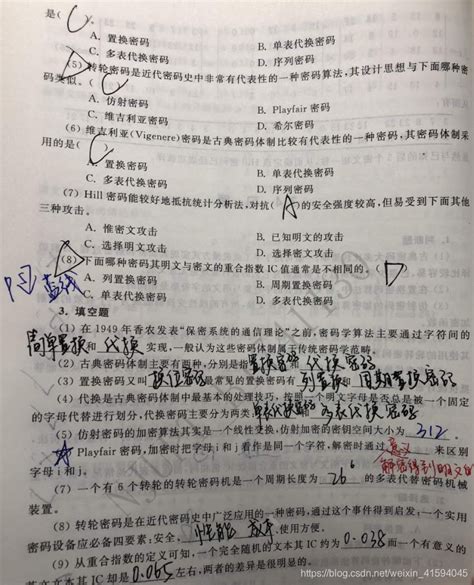 是( C )。
A. 置换密码 B. 单表代换密码
C. 多表代换密码 D. 序列密码
(5) 转轮密码是近代密码史中非常有代表性的一种密码算法,其设计思想与下面哪种密
码类似。( C )
A. 仿射密码 B. Playfair 密码
C. 维吉利亚密码 D. 希尔密码
(6) 维吉利亚(Vigenere)密码是古典密码体制比较有代表性的一种密码,其密码体制采
用的是( C )
A. 置换密码 B. 单表代换密码
C. 多表代换密码 D. 序列密码
(7) Hill 密码能较好地抵抗统计分析法,对抗( A )的安全强度较高,但易受到下面其他
三种攻击。
A. 惟密文攻击 B. 已知明文的攻击
C. 选择明文攻击 D. 选择密文攻击
(8) 下面哪种密码其明文与密文的重合指数 IC 值通常是不相同的。( D )
A. 列置换密码 B. 周期置换密码
C. 单表代换密码 D. 多表代换密码
3. 填空题
(1) 在 1949 年香农发表“保密系统的通信理论”之前,密码学算法主要通过字符间的
周单置换 和 代换 实现,一般认为这些密码体制属于传统密码学范畴。
(2) 古典密码体制主要有两种,分别是指 置换密码 代换密码
(3) 置换密码又叫 换位密码 最常见的置换密码有 列置换 和 周期置换密码
(4) 代换是古典密码体制中最基本的处理技巧,按照一个明文字母是否总是被一个固定
的字母代替进行划分,代换密码主要分为两类 单表代换密码 多表代换密码
(5) 仿射密码的加密算法其实是一个线性变换,仿射加密的密钥空间大小为 312 。
Playfair 密码,加密时把字母 i 和 j 看作是同一个字符,解密时通过 意义 来区别
字母 i 和 j。
(7) 一个有 6 个转轮的转轮密码机是一个周期长度为 26⁶ 的多表代替密码机械
装置。
(8) 转轮密码是在近代密码史中广泛应用的一种密码,通过这个事件得到启发:一个实用
密码设备应必备四要素:安全、 性能 效率 、使用方便。
(9) 从重合指数的定义可知,一个完全随机的文本其 IC 约为 0.038 而一个有意义的
英文文本其 IC 却是 0.065 左右,两者的差异是很明显的。
https://blog.csdn.net/weixin_41594045